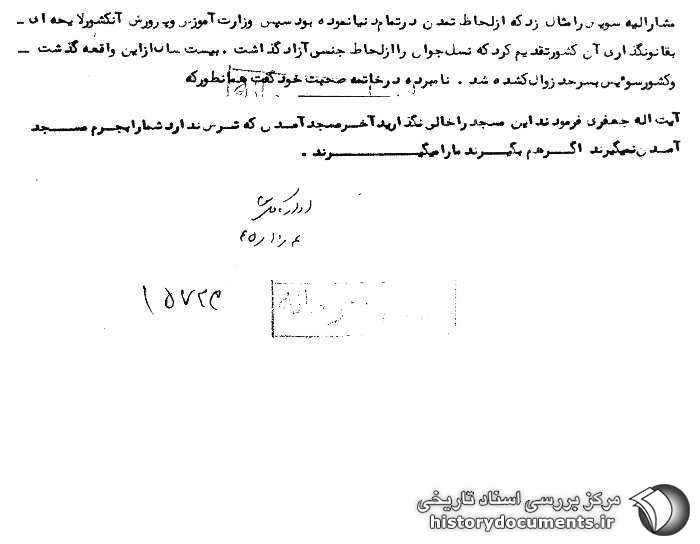 مشارالیه سویس را مثال زد که از لحاظ تمدن در تمام دنیا نمونه بود سپس وزارت آموزش و پرورش آنکشور لایحه ای ـ
بقانونگذاری آن کشور تقدیم کرد که نسل جوان را از لحاظ جنسی آزاد گذاشت . بیست سال از این واقعه گذشت ـ
و کشور سوئیس بسر حد زوال کشده شد . نامبرده در خاتمه صحبت خود گفت همانطور که
آیت اله جعفری فرمودند این مسجد را خالی نگذارید آخر مسجد آمدن که ترس ندارد شما را بجرم مسجد
آمدن نمیگیرند اگر هم بگیرند ما را میگیرند .
۱۵۷۲۳
مرکز بررسی اسناد تاریخی
historydocuments.ir